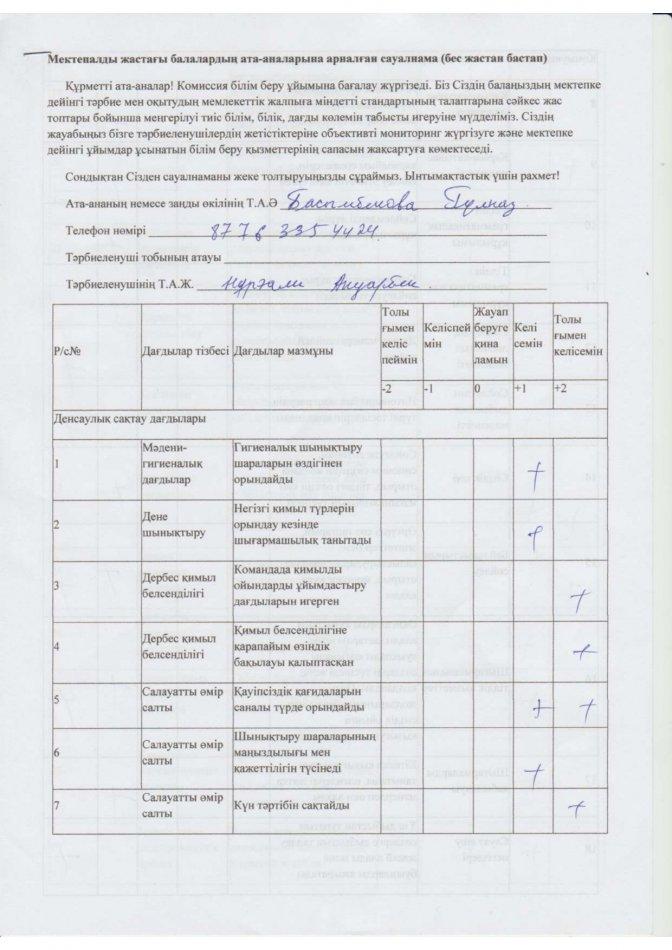 Мектепалды жастағы балалардың ата-аналарына арналған сауалнама (бес жастан бастап)
Құрметті ата-аналар! Комиссия білім беру ұйымына бағалау жүргізеді. Біз Сіздің балаңыздың мектепке
дейінгі тәрбие мен оқытудың мемлекеттік жалпыға міндетті стандартының талаптарына сәйкес жас
топтары бойынша меңгерілуі тиіс білім, білік, дағды көлемін табысты игеруіне мүдделіміз. Сіздің
жауабыңыз бізге тәрбиеленушілердің жетістіктеріне объективті мониторинг жүргізуге және мектепке
дейінгі ұйымдар ұсынатын білім беру қызметтерінің сапасын жақсартуға көмектеседі.
Сондықтан Сізден сауалнаманы жеке толтыруыңызды сұраймыз. Ынтымақтастық үшін рахмет!
Ата-ананың немесе заңды өкілінің Т.А.Ә Гулназ
Телефон нөмірі 8776 335 4424
Тәрбиеленуші тобының атауы
Тәрбиеленушінің Т.А.Ж. Нұрғали Ануарбек
Р/с№ Дағдылар тізбесі Дағдылар мазмұны Толығымен келіспеймін Келіспеймін Жауап беруге қиналамын Келісемін Толығымен келісемін
-2 -1 0 +1 +2
Денсаулық сақтау дағдылары
1 Мәдени-гигиеналық дағдылар Гигиеналық шынықтыру шараларын өздігінен орындайды +
2 Дене шынықтыру Негізгі қимыл түрлерін орындау кезінде шығармашылық танытады +
3 Дербес қимыл белсенділігі Командада қимылды ойындарды ұйымдастыру дағдыларын игерген +
4 Дербес қимыл белсенділігі Қимыл белсенділігіне қарапайым өзіндік бақылауы қалыптасқан +
5 Салауатты өмір салты Қауіпсіздік қағидаларын саналы түрде орындайды + +
6 Салауатты өмір салты Шынықтыру шараларының маңыздылығы мен қажеттілігін түсінеді +
7 Салауатты өмір салты Күн тәртібін сақтайды +